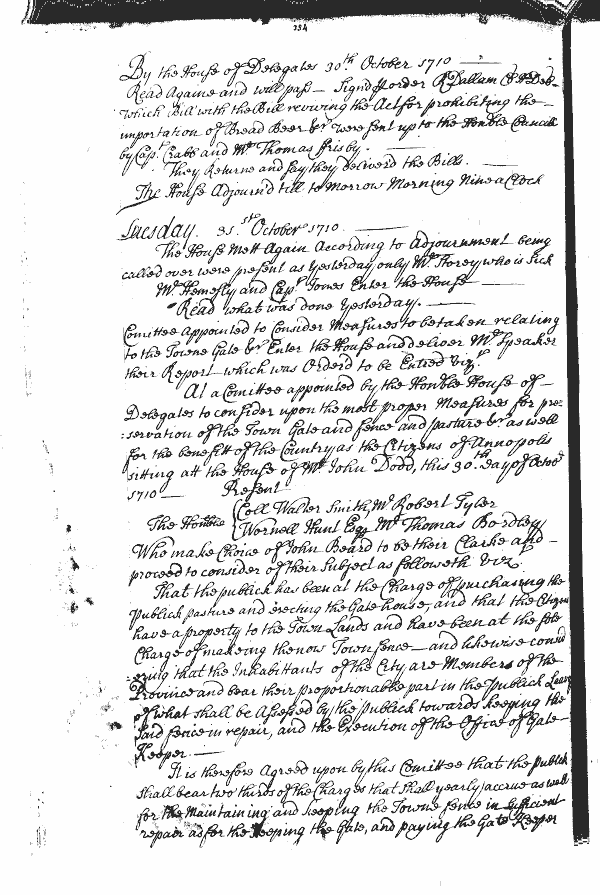 254
By the House of Delegates 30th October 1710
Read Againe and will pass — Signd p order R Dallam Cl
which Bill with the Bill reviving the Act for prohibiting the
importation of Bread Beer &c were sent up to the Honble Councill
by Capt Crabb and Mr Thomas Frisby.
They Returne and say they deliverd the Bills.
The House Adjournd till to Morrow Morning Nine a Clock
Tuesday. 31.st October 1710
The House Mett Again According to Adjournment being
called over were present as yesterday only Mr Storey who is Sick
Mr Hemesly and Capt Jones Enter the House
Read what was done yesterday.
Comittee Appointed to Consider Measures to be taken relating
to the Towne Gate &c Enter the House and deliver Mr Speaker
their Report which was Orderd to be Entred vizt
At a Comittee appointed by the Honble House of
Delegates to consider upon the most proper Measures for pre=
:servation of the Town Gate and fence and pasture &c as well
for the benefitt of the Country as the Citizens of Annopolis
sitting att the House of Mr John Dodd, this 30.th day of Octob
1710 — Present
The Honble Coll Walter Smith, Mr Robert Tyler
Wornell Hunt Esqr Mr Thomas Bordley
Who make Choice of John Beard to be their Clarke and
proceed to consider of their Subject as followeth Viz
That the publick has been at the Charge of purchasing the
Publick pasture and erecting the Gate house, and that the Citizens
have a property to the Town Lands and have been at the sole
Charge of makeing the now Town fence — and likewise consid
:ering that the Inhabittants of the City are Members of the
Province and bear their proportionable part in the Publick Leavy
of what shall be Assessed by the Publick towards keeping the
said fence in repair, and the Execution of the Office of Gate
Keeper.
It is therefore Agreed upon by this Comittee that the Publick
shall bear two thirds of the Charges that shall yearly accrue as well
for the Maintaining and keeping the Towne fence in sufficient
repair as for the keeping the Gate, and paying the Gate Keeper